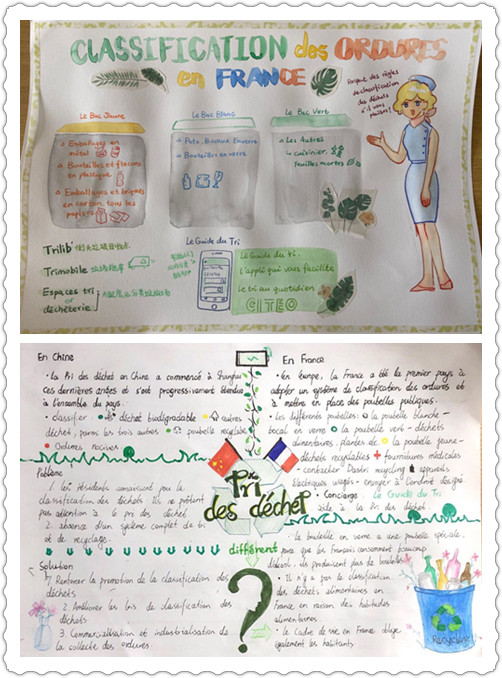 CLASSIFICATION des ORDURES
en FRANCE
Le Bac Jaune
Emballages en
métal
Bouteilles et flacons
en plastique
Emballages et briques
en carton, tous les
papiers
Le Bac Blanc
Pots, Bocaux en verre
Bouteilles en verre
Le Bac Vert
Les Autres
cuisinier
feuilles mortes
des règles
de classification
des déchets
s'il vous
plaît!
Trilib'
Trimobile
Espaces tri
or
déchèterie
Le Guide du Tri
Le Guide du tri.
L'appli qui vous facilite
Le tri au quotidien
CITEO
En Chine
La Tri des déchet en Chine a commencé à Shanghai
ces dernières années et s'est progressivement étendue
à l'ensemble du pays.
classifier: déchet biodégradable autres
déchet, parmi les trois autres poubelle recyclable
Ordures nocives
Problème
1. Les résidents connaissent peu la
classification des déchets. Ils ne prêtent
pas attention à le tri des déchet
2. absence d'un système complet de tri
et de recyclage.
Solution
1. Renforcer la promotion de la classification des
déchets
2. Améliorer les lois de classification des
déchets
3. Commercialisation et industrialisation de
la collecte des ordures.
Tri
des déchet
différent
?
En France
En Europe, la France a été la premier pays à
adopter un système de classification des ordures et
à mettre en place des poubelles publiques.
Les différents poubelles: la poubelle blanche -
bocal en verre la poubelle vert - déchets
alimentaires, plantes la poubelle jaune -
déchets recyclables fournitures médicales
- contacter Dastri recycling appareils
électriques usagés - envoyer à l'endroit désigné
Concierge. Le Guide du Tri
aide à la Tri des déchet.
la poubelle en verre a une poubelle spéciale,
parce que les Français consomment beaucoup
d'alcool, ils produisent plus de bouteilles
Il n'y a pas la classification
des déchets alimentaires en
France en raison des habitudes
alimentaires
Le cadre de vie en France oblige
également les habitants
Recycling